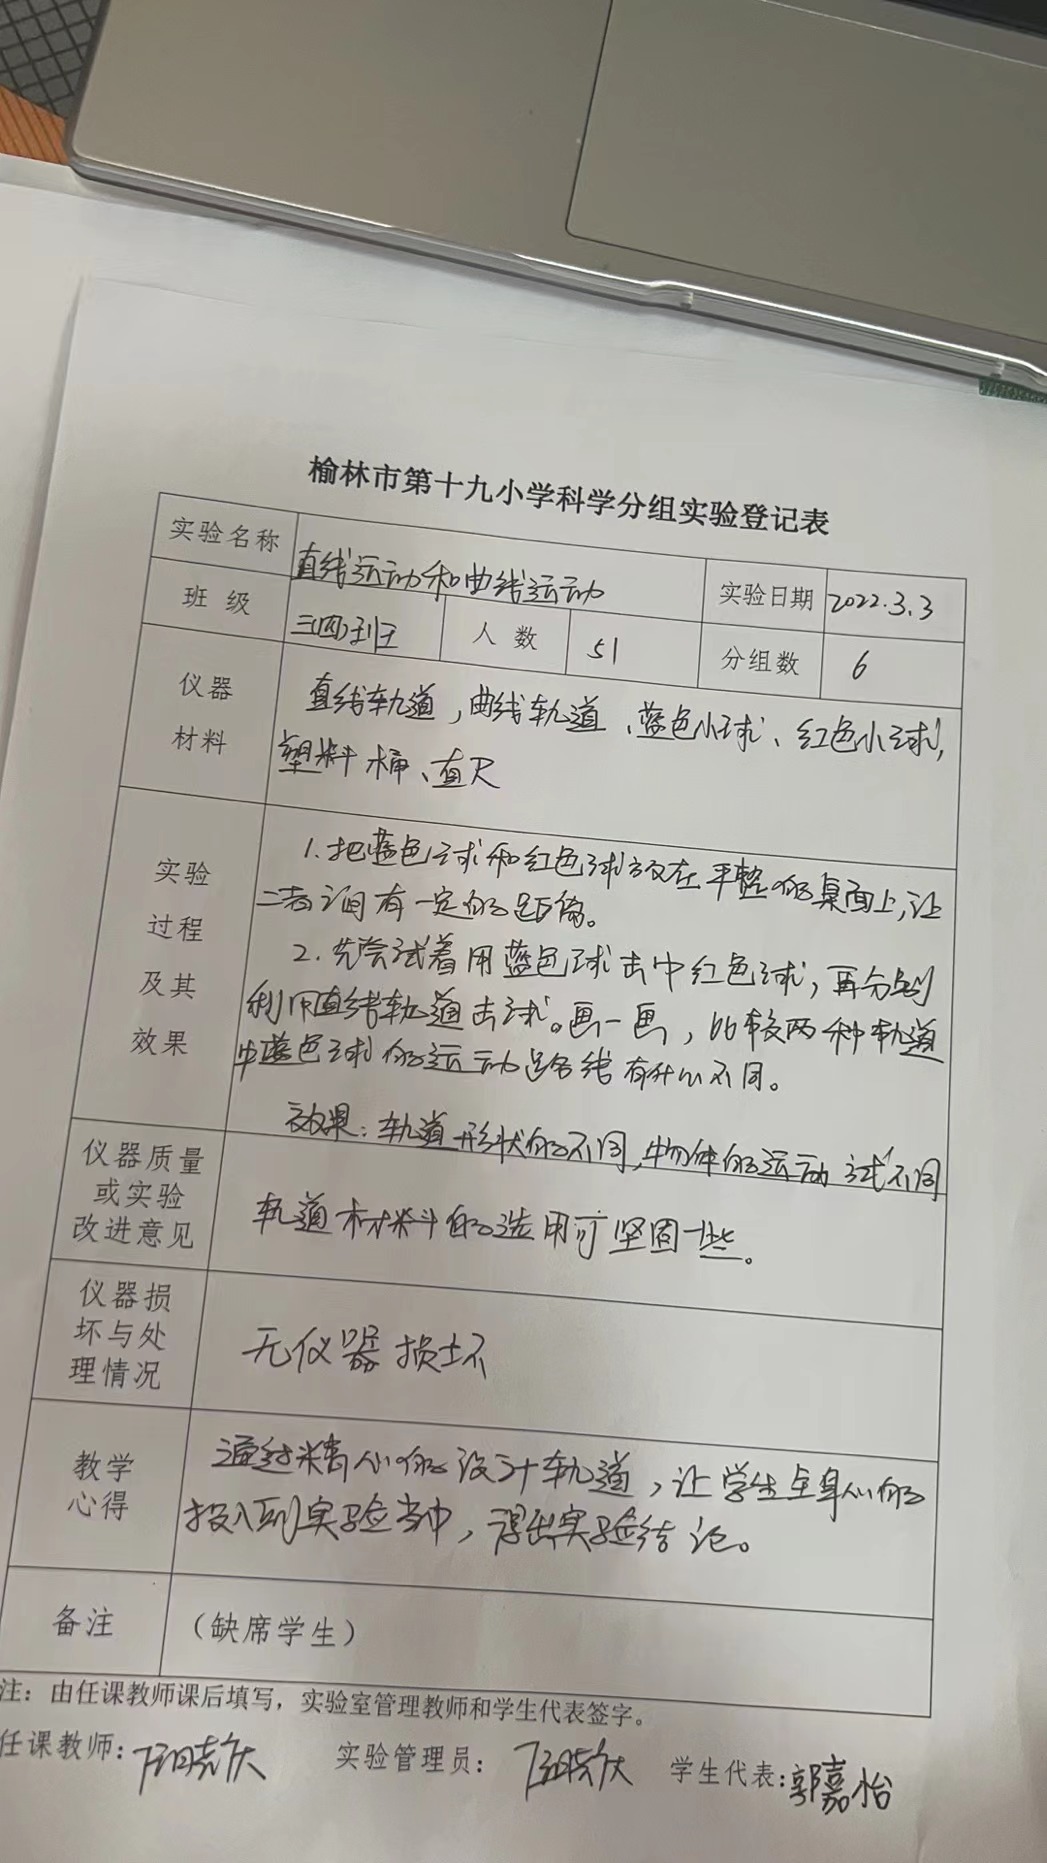 榆林市第十九小学科学分组实验登记表
实验名称 直线运动和曲线运动 实验日期 2022.3.3
班 级 三(四)班 人 数 51 分组数 6
仪器
材料
直线轨道,曲线轨道、蓝色小球、红色小球,
塑料桶、直尺
实验
过程
及其
效果
1.把蓝色球和红色球放在平整的桌面上,让
二者间有一定的距离。
2.先尝试着用蓝色球击中红色球,再分别
利用直线轨道击球。画一画,比较两种轨道
中蓝色球的运动路线有什么不同。
效果:轨道形状的不同,物体的运动方式不同
仪器质量
或实验
改进意见
轨道材料的选用可坚固一些。
仪器损
坏与处
理情况
无仪器损坏
教学
心得
通过精心的设计轨道,让学生全身心的
投入到实验当中,得出实验结论。
备注 (缺席学生)
注:由任课教师课后填写,实验室管理教师和学生代表签字。
任课教师: 实验管理员: 学生代表:郭嘉怡